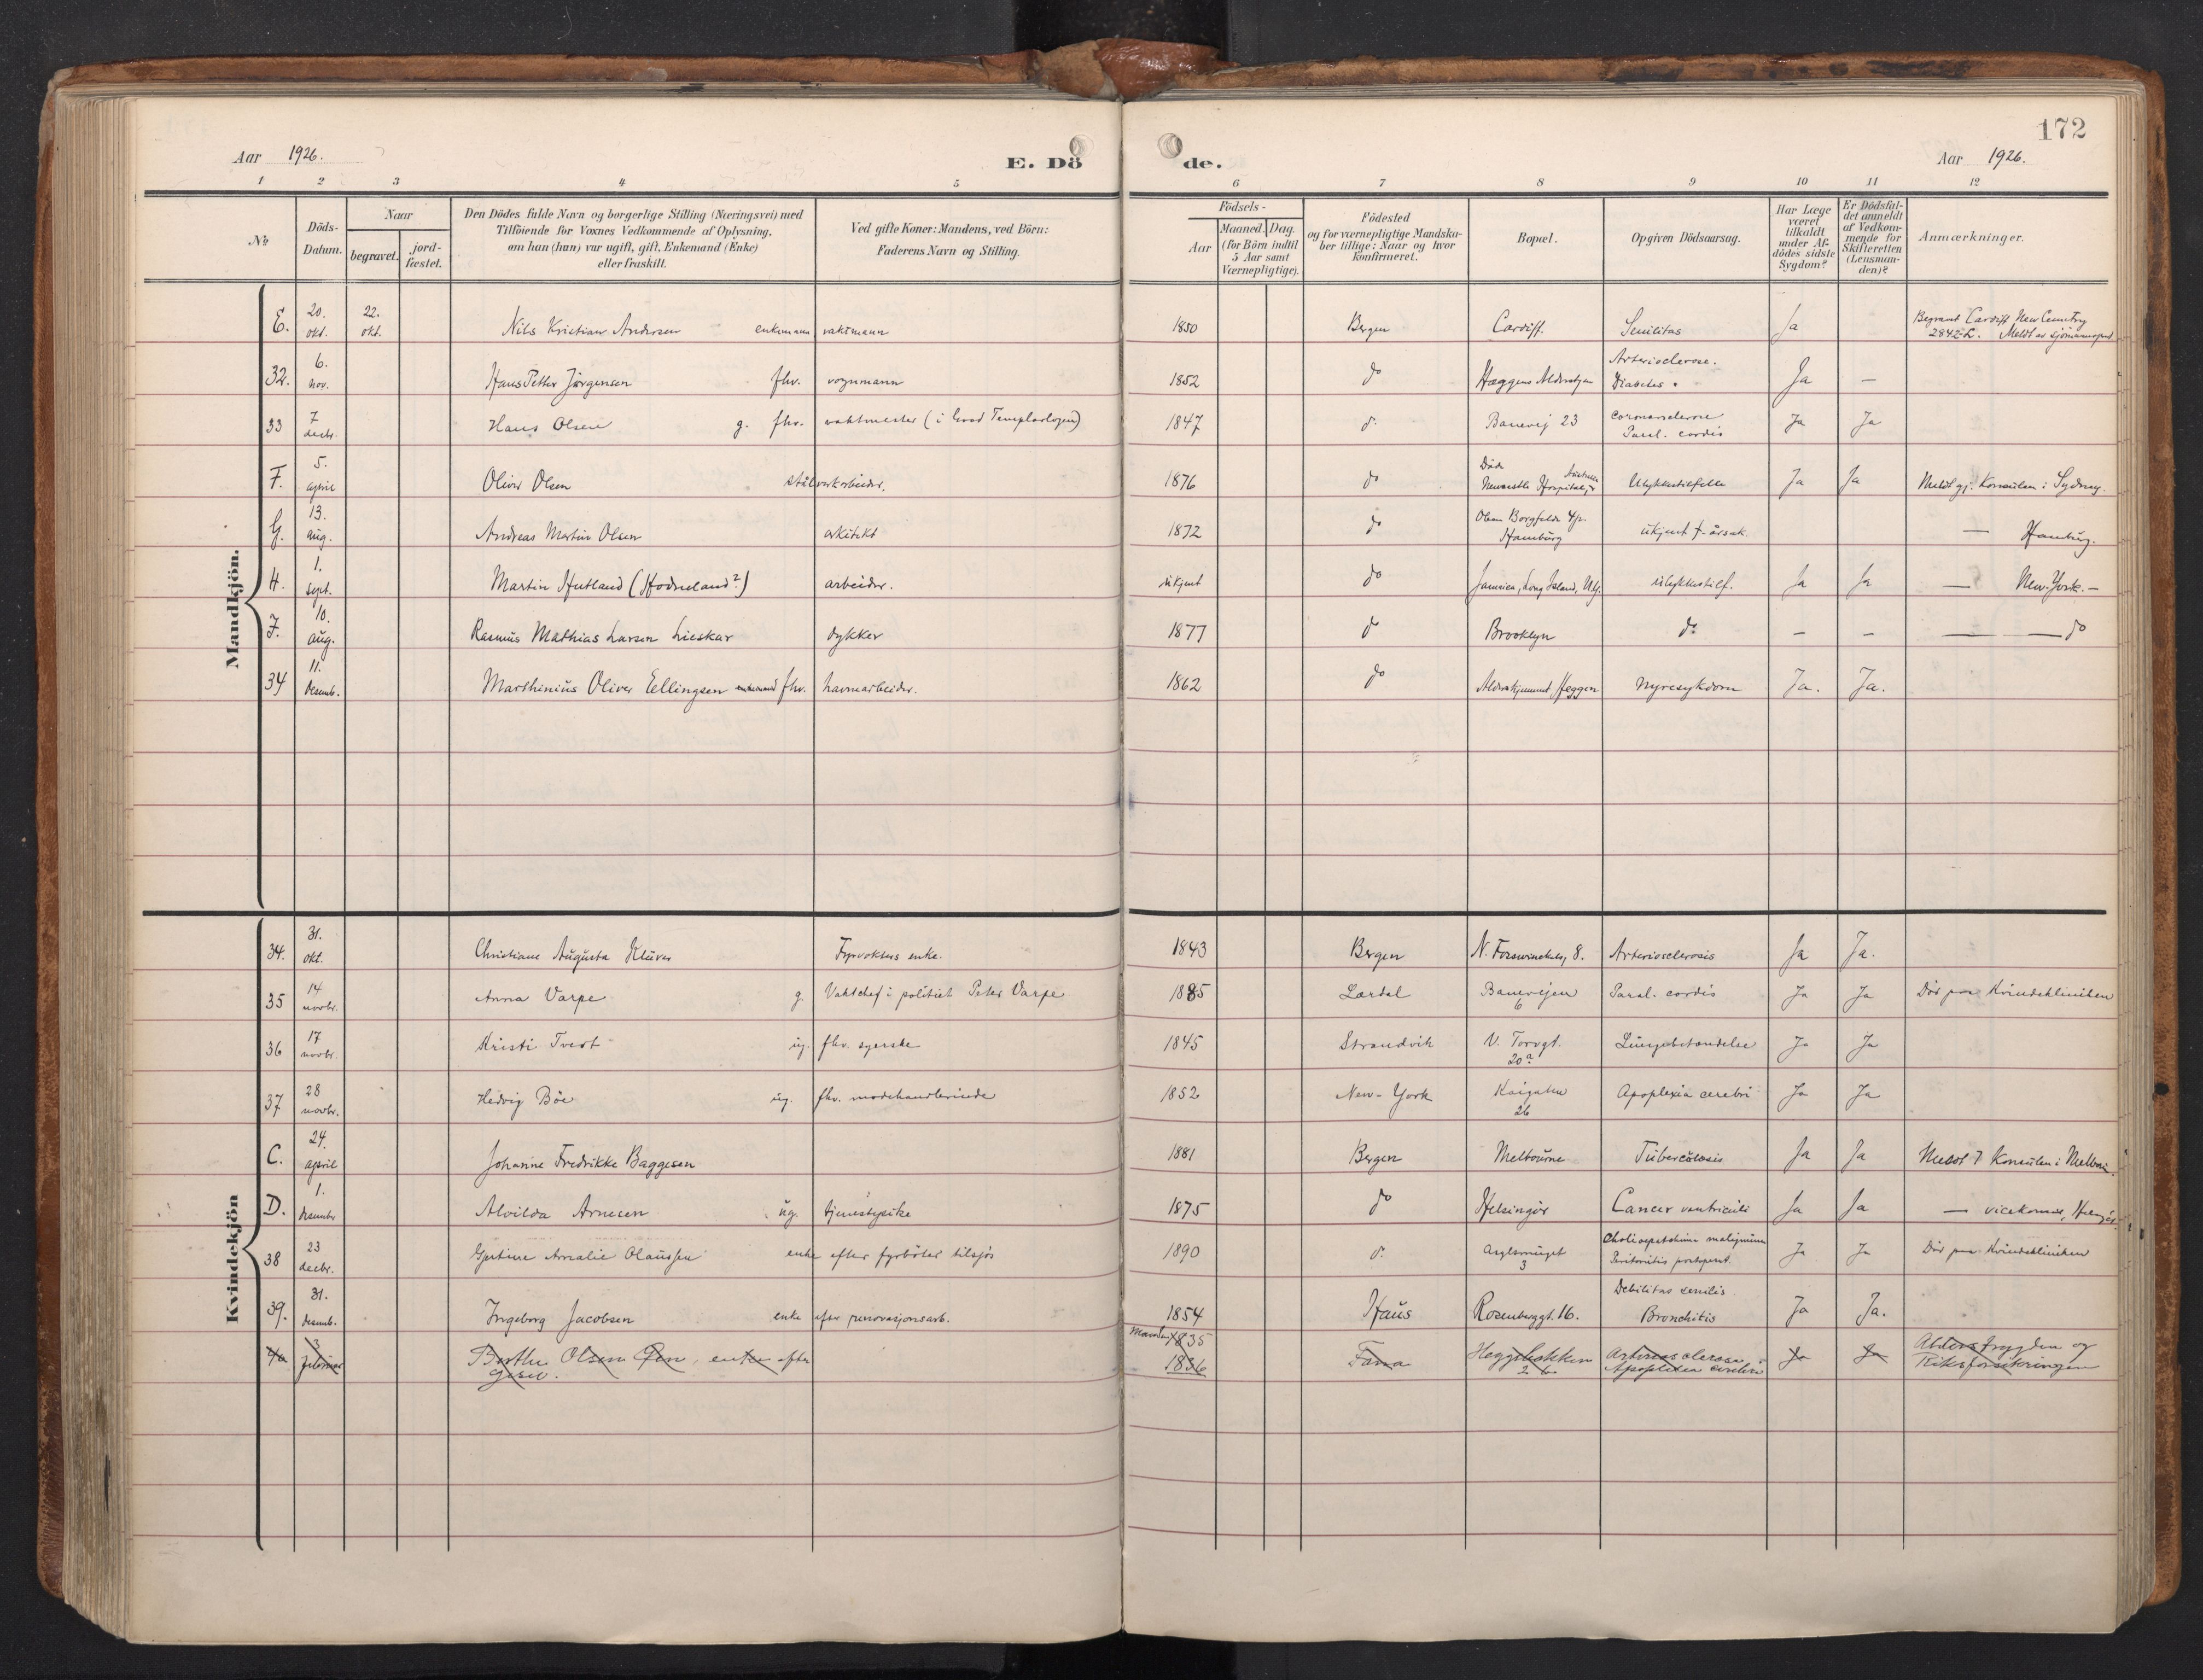 172
Aar 1926.
E. Dö de.
Aar 1926.
1 2 3 4 5 6 7 8 9 10 11 12
No
Döds-Datum.
Naar
begravet.
jord-fæstet.
Den Dödes fulde Navn og borgerlige Stilling (Næringsvei) med
Tilföiende for Voxnes Vedkommende af Oplysning,
om han (hun) var ugift, gift, Enkemand (Enke)
eller fraskilt.
Ved gifte Koner: Mandens, ved Börn:
Faderens Navn og Stilling.
Födsels-
Aar
Maaned. Dag.
(for Börn indtil
5 Aar samt
Værnepligtige).
Födested
og for værnepligtige Mandska-
ber tillige: Naar og hvor
konfirmeret.
Bopæl.
Opgiven Dödsaarsag.
Har Læge
været
tilkaldt
under Af-
dödes sidste
Sygdom?
Er Dödsfal-
det anmeldt
af Vedkom-
mende for
Skifteretten
(Lensman-
den)?
Anmærkninger.
Mandkjön.
E. 20. okt. 22. okt. Nils Kristian Andersen enkemann vaktmann 1850 Bergen Cardiff. Senilitas Ja Begravet Cardiff New Cemetry
Meldt av
32. 6. nov. Hans Petter Jørgensen fhv. vognmann 1852 do Arteriosclerose. Diabetes. Ja —
33 7 decbr. Hans Olsen g. fhv. vaktmester (i Good Templarlogen) 1847 do Banevej 23 Paral. cordis Ja Ja
F. 5. april Oliver Olsen stålverkarbeider. 1876 do Døde Newcastle Hospital, Ulykkestilfelle Ja Ja Meldt gj. Konsulen i Sydney.
G. 13. aug. Andreas Martin Olsen arkitekt 1872 do Hamburg ukjent †-årsak — Hamburg.
H. 1. sept. Martin Hutland (Hodneland?) arbeider. ukjent do Jamaica, Long Island, ulykkestilf. Ja Ja — New York. —
J. 10. aug. Rasmus Mathias Larsen Lieskar dykker 1877 do Brooklyn do — — — — do
34 11. desemb. Marthinius Oliver Eellingsen enkemand fhv. havnearbeider. 1862 do Heggen nyresykdom Ja. Ja.
Kvindekjön
34. 31. okt. Christiane Augusta Klüver Fyrvokters enke. 1843 Bergen 8. Arteriosclerosis Ja Ja.
35 14 novbr. Anna Varpe g. Vaktchef i politiet Peter Varpe 1885 Lærdal Banevejen 6 Paral. cordis Ja Ja Död paa Kvindekliniken
36 17 novbr. Kristi Tvedt ug. fhv. syerske 1845 Strandvik V. Torvgt. 20a Lungebetændelse Ja Ja
37 28 novbr. Hedvig Böe ug. fhv. modehandlerinde 1852 New-York Kaigaten 26 Apoplexia cerebri Ja Ja
C. 24. april Johanne Fredrikke Baggesen 1881 Bergen Melbourne Tuberculosis Ja Ja Meldt Konsulen i
D. 1. desember Alvilda Arnesen ug. tjenestepike 1875 do Helsingör Cancer ventriculi Ja Ja —
38 23 decbr. Gjertine Amalie Olaussen enke efter fyrböter tilsjös 1890 do Asylsmuget 3 Peritonitis postoperat. Ja Ja Död paa Kvindekliniken
39. 31. desemb. Ingeborg Jacobsen enke efter renovasjonsarb. 1854 Haus Rosenberggt. 16. Debilitas senilis. Bronchitis Ja Ja.
40 3 Berthe Olsen enke efter 1835
1836 Fana Heggebakken 2 Arteriosclerose Apoplexia cerebri Ja Ja Alderstrygden og Riksforsikringen